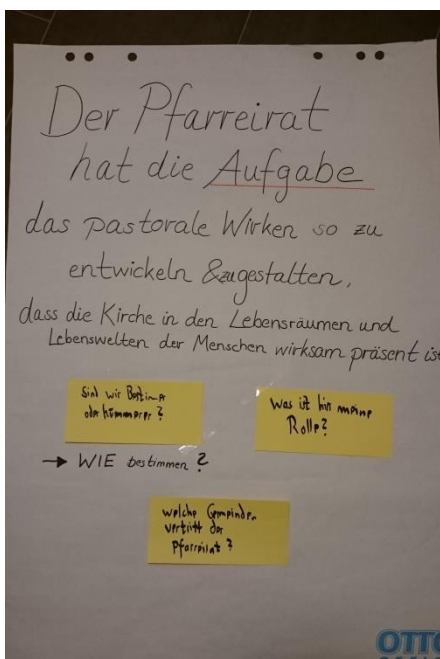 Der Pfarreirat
hat die Aufgabe
das pastorale Wirken so zu
entwickeln & zu gestalten,
dass die Kirche in den Lebensräumen und
Lebenswelten der Menschen wirksam präsent ist
Sind wir
oder Kümmerer?
Was ist hier meine
Rolle?
→ WIE bestimmen?
welche Gemeinden
vertritt der
Pfarreirat?
OTTO